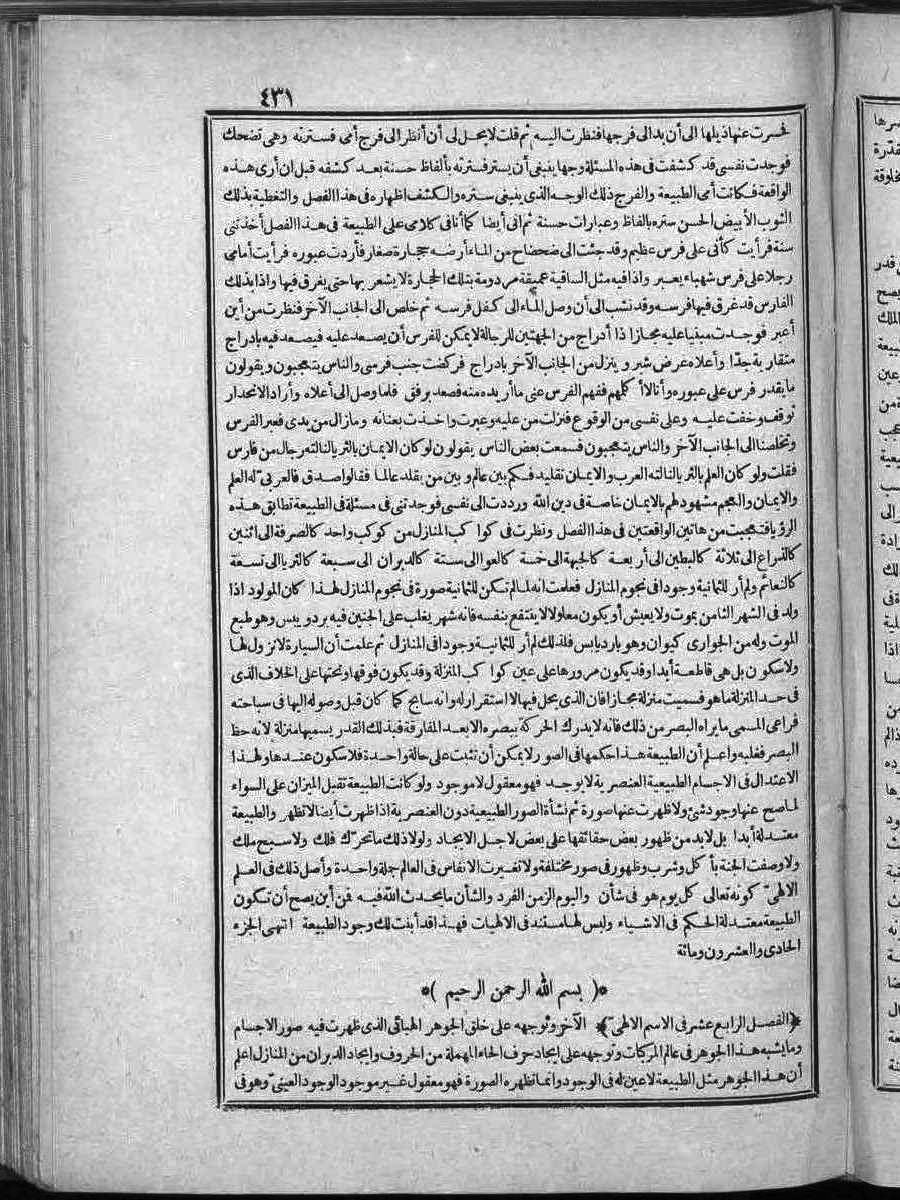 ٤٣١
فحسرت عنها ذيلها الى أن بدا لى فرجها فنظرت اليه ثم قلت لا يحل لى أن أنظر الى فرج أمى فسترته وهى تضحك
فوجدت نفسى قد كشفت فى هذه المسئلة وجها ينبغى أن يستر فسترته بألفاظ حسنة بعد كشفه قبل ان أرى هذه
الواقعة فكانت أمى الطبيعة والفرج ذلك الوجه الذى ينبغى ستره والكشف اظهاره فى هذا الفصل والتغطية بذلك
الثوب الأبيض الحسن ستره بالفاظ وعبارات حسنة ثم انى أيضا كما أنا فى كلامى على الطبيعة فى هذا الفصل أخذتنى
سنة فرأيت كأنى على فرس عظيم وقد جئت الى ضحضاح من الماء أرضه حجارة صغار فأردت عبوره فرأيت أمامى
رجلا على فرس شهباء يعبر واذا فيه مثل الساقية عميقة مردومة بتلك الحجارة لا يشعر بها حتى يغرق فيها واذا بذلك
الفارس قد غرق فيها فرسه وقد نشب الى أن وصل الماء الى كفل فرسه ثم خلص الى الجانب الآخر فنظرت من أين
أعبر فوجدت مبنيا عليه مجازا ذا أدراج من الجهتين للرجالة لا يمكن للفرس أن يصعد عليه فيصعد فيه بادراج
متقاربة جدّا وأعلاه عرض شبر وينزل من الجانب الآخر بادراج فركضت جنب فرسى والناس يتعجبون ويقولون
ما يقدر فرس على عبوره وأنا لا أكلهم ففهم الفرس عنى ما أريده منه فصعد برفق فلما وصل الى أعلاه وأراد الانحدار
توقف وخفت عليه وعلى نفسى من الوقوع فنزلت من عليه وعبرت واخذت بعنانه وما زال من يدى فعبر الفرس
وتخلصنا الى الجانب الآخر والناس يتعجبون فسمعت بعض الناس يقولون لو كان الايمان بالثريا لنالته رجال من فارس
فقلت ولو كان العلم بالثريا لنالته العرب والايمان تقليد فكم بين عالم وبين من يقلد عالما فقالوا صدق فالعربىّ له العلم
والايمان والعجم مشهود لهم بالايمان خاصة فى دين الله ورددت الى نفسى فوجدتنى فى مسئلة فى الطبيعة تطابق هذه
الرؤيا فتعجبت من هاتين الواقعتين فى هذا الفصل ونظرت فى كواكب المنازل من كوكب واحد كالصرفة الى اثنين
كالذراع الى ثلاثة كالبطين الى أربعة كالجبهة الى خمسة كالعوا الى ستة كالدبران الى سبعة كالثريا الى تسعة
كالنعائم ولم أر للثمانية وجودا فى نجوم المنازل فعلمت انه لما لم تكن للثمانية صورة فى نجوم المنازل لهذا كان المولود اذا
ولد فى الشهر الثامن يموت ولا يعيش أو يكون معلولا لا ينتفع بنفسه فانه شهر يغلب على الجنين فيه برد ويبس وهو طبع
الموت وله من الجوارى كيوان وهو بارد يابس فلذلك لم أر للثمانية وجودا فى المنازل ثم علمت أن السيارة لا نزول لها
ولا سكون بل هى قاطعة أبدا وقد يكون مرورها على عين كواكب المنزلة وقد يكون فوقها وتحتها على الخلاف الذى
فى حد المنزلة ما هو فسميت منزلة مجازا فان الذى يحل فيها لا استقرار له وانه سابح كما كان قبل وصوله اليها فى سباحته
فراعى المسمى ما يراه البصر من ذلك فانه لا يدرك الحركة ببصره الا بعد المفارقة فبذلك القدر يسميها منزلة لانه حظ
البصر فغلبه واعلم أن الطبيعة هذا حكمها فى الصور لا يمكن أن تثبت على حالة واحدة فلا سكون عندها ولهذا
الاعتدال فى الاجسام الطبيعية العنصرية لا يوجد فهو معقول لا موجود ولو كانت الطبيعة تقبل الميزان على السواء
لما صح عنها وجود شئ ولا ظهرت عنها صورة ثم نشأة الصور الطبيعية دون العنصرية اذا ظهرت أيضا لا تظهر والطبيعة
معتدلة أبدا بل لا بد من ظهور بعض حقائقها على بعض لاجل الايجاد ولولا ذلك ما تحرّك فلك ولا سبح ملك
ولا وصفت الجنة بأكل وشرب وظهور فى صور مختلفة ولا تغيرت الانفاس فى العالم جملة واحدة وأصل ذلك فى العلم
الالهىّ كونه تعالى كل يوم هو فى شأن واليوم الزمن الفرد والشأن ما يحدث الله فيه فمن أين يصح أن تكون
الطبيعة معتدلة الحكم فى الاشياء وليس لها مستند فى الالهيات فهذا قد أبنت لك وجود الطبيعة انتهى الجزء
الحادى والعشرون ومائة
*( بسم الله الرحمن الرحيم )*
﴿الفصل الرابع عشر فى الاسم الالهىّ﴾ الآخر وتوجهه على خلق الجوهر الهبائى الذى ظهرت فيه صور الاجسام
وما يشبه هذا الجوهر فى عالم المركبات وتوجهه على ايجاد حرف الحاء المهملة من الحروف وايجاد الدبران من المنازل اعلم
أن هذا الجوهر مثل الطبيعة لا عين له فى الوجود وانما تظهره الصورة فهو معقول غير موجود الوجود العينىّ وهو فى